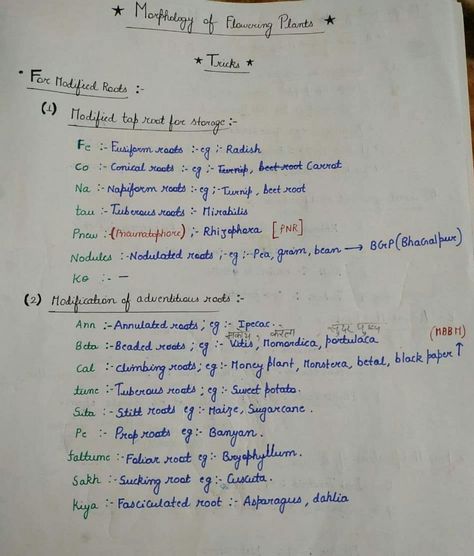 ★ Morphology of Flowering Plants ★
★ Tricks ★
• For Modified Roots :-
(1) Modified tap root for storage :-
Fe :- Fusiform roots :- eg :- Radish
Co :- Conical roots :- eg :- Turnip, beet root Carrot
Na :- Napiform roots :- eg ;- Turnip, beet root
tau :- Tuberous roots :- Mirabilis
Pneu :- (Pneumatophore) ;- Rhizophora [PNR]
Nodules :- Nodulated roots ; eg :- Pea, gram, bean → BGP (Bhagalpur)
Ko :- -
(2) Modification of adventitious roots :-
Ann :- Annulated roots ; eg :- Ipecac.
करेला
(MBBM)
Beta :- Beaded roots ; eg :- Vitis, Momordica, portulaca
Cal :- climbing roots ; eg :- Money plant, Monstera, betal, black paper ↑
tune :- Tuberous roots ; eg :- Sweet potato.
Sita :- Stilt roots eg :- Maize, Sugarcane.
Pe :- Prop roots eg :- Banyan.
faltume :- Foliar root eg :- Bryophyllum.
Sakh :- Sucking root eg :- Cuscuta.
Kiya :- Fasciculated root :- Asparagus, dahlia